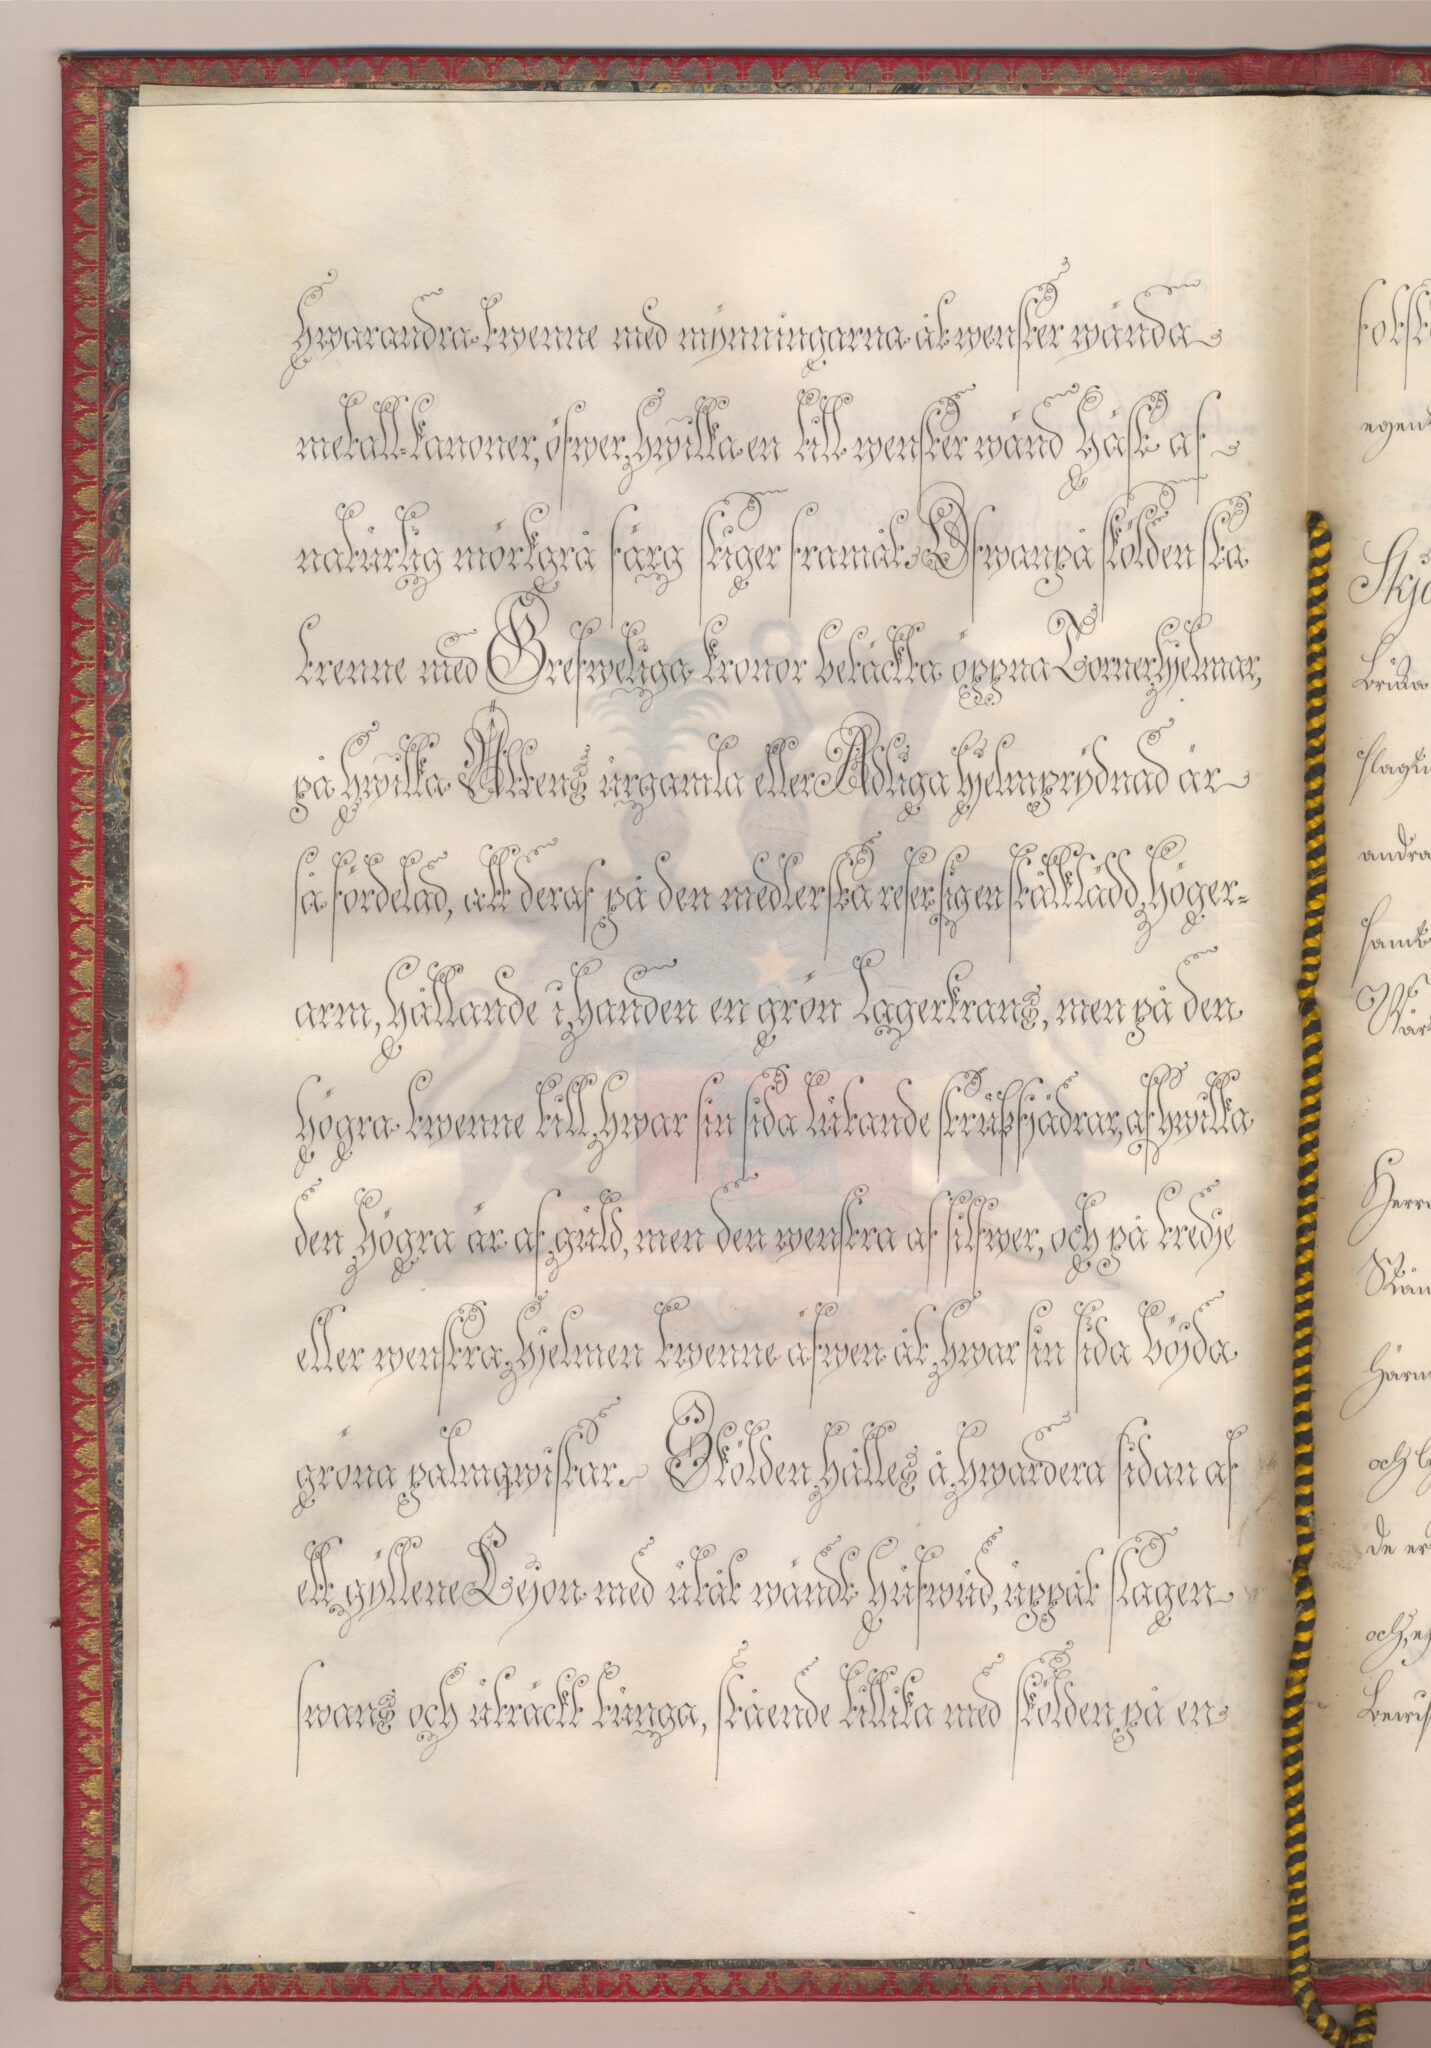 hwarandra twenne med mynningarna åt wenster wända
metall-kanoner, öfwer hwilka en till wenster wänd häst af
naturlig mörkgrå färg stiger framåt. Ofwanpå skölden stå
trenne med Grefweliga kronor betäckta öppna Tornerhjelmar,
på hwilka Ättens urgamla eller Adliga hjelmprydnad är
så fördelad, att deraf på den medlersta reser sig en stålklädd höger-
arm, hållande i handen en grön lagerkrans, men på den
högra twenne till hwar sin sida lutande strutsfjädrar, af hwilka
den högra är af guld, men den wenstra af silfwer, och på tredje
eller wenstra hjelmen twenne äfwen åt hwar sin sida böjda
gröna palmqwistar. Skölden hålles å hwardera sidan af
ett gyllene Lejon med utåt wändt hufwud, uppåt slagen
swans och uträckt tunga, stående tillika med skölden på en
egent
Skjö
bruka
slagu
andra
samt
Herr
och
de er